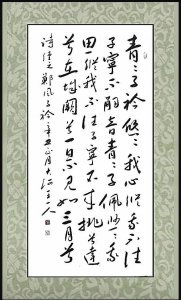 青〻子衿悠〻我心縱我不往
子寧不嗣音青〻子佩悠〻我
思縱我不往子寧不來挑兮達
兮在城闕兮一日不見如三月兮
詩經之鄭風子衿辛丑正月大河主人